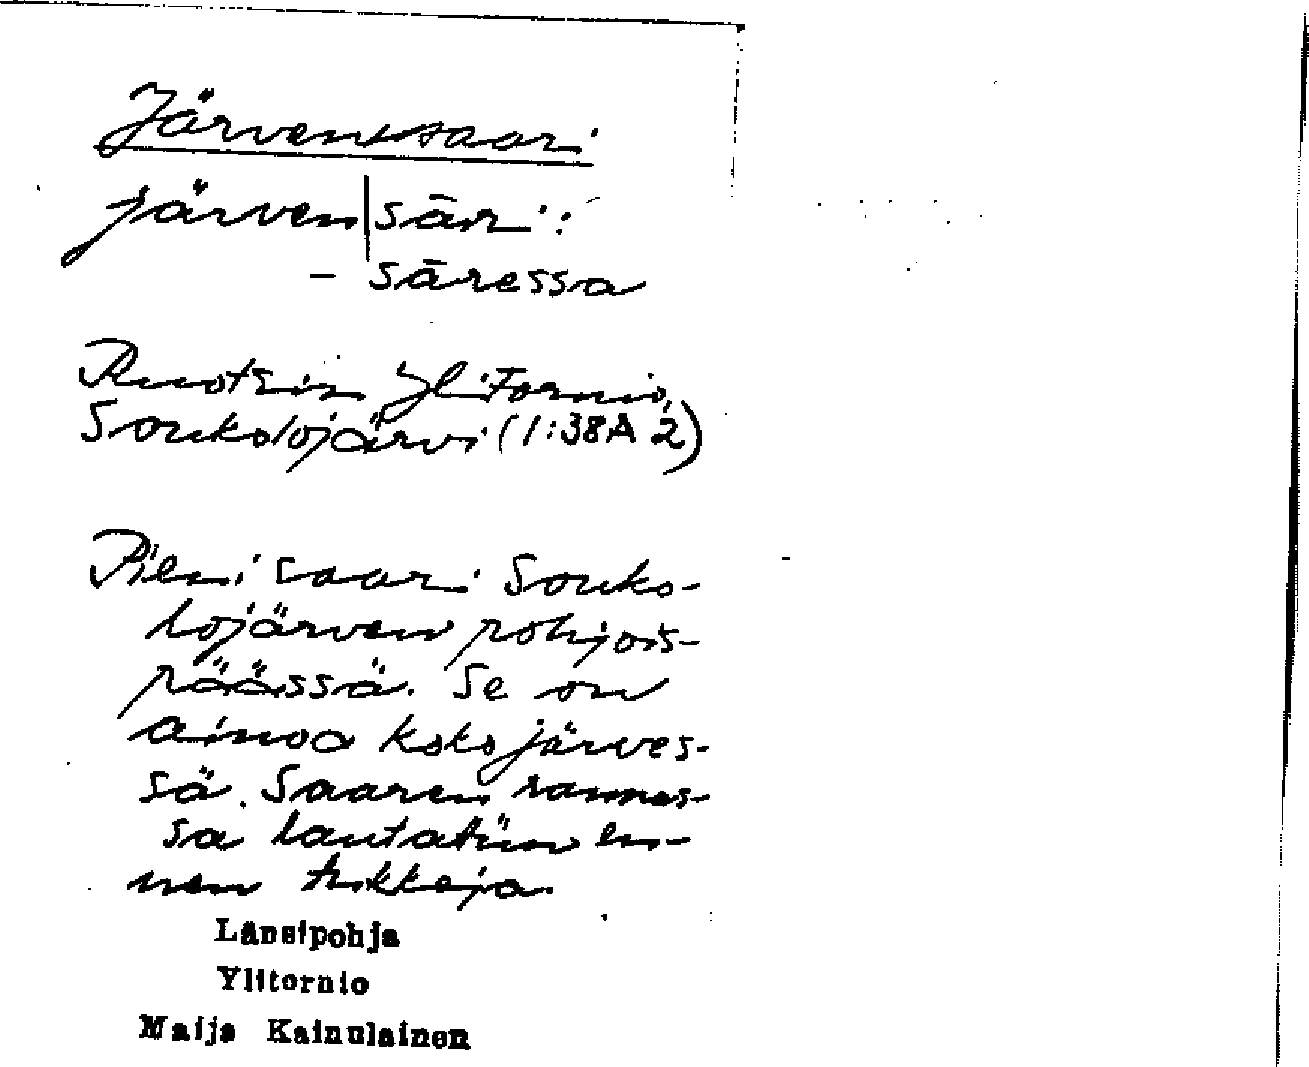 Järvensaari
järven|sāri:
– sāressa
Ruotsin Ylitornio,
Soukolojärvi (1:38A 2)
Pieni saari Souko-
lojärven pohjois-
päässä. Se on
ainoa koko järves-
sä. Saaren rannas-
sa lautatiin en-
nen tukkeja.
Länsipohja
Ylitornio
Maija Kainulainen